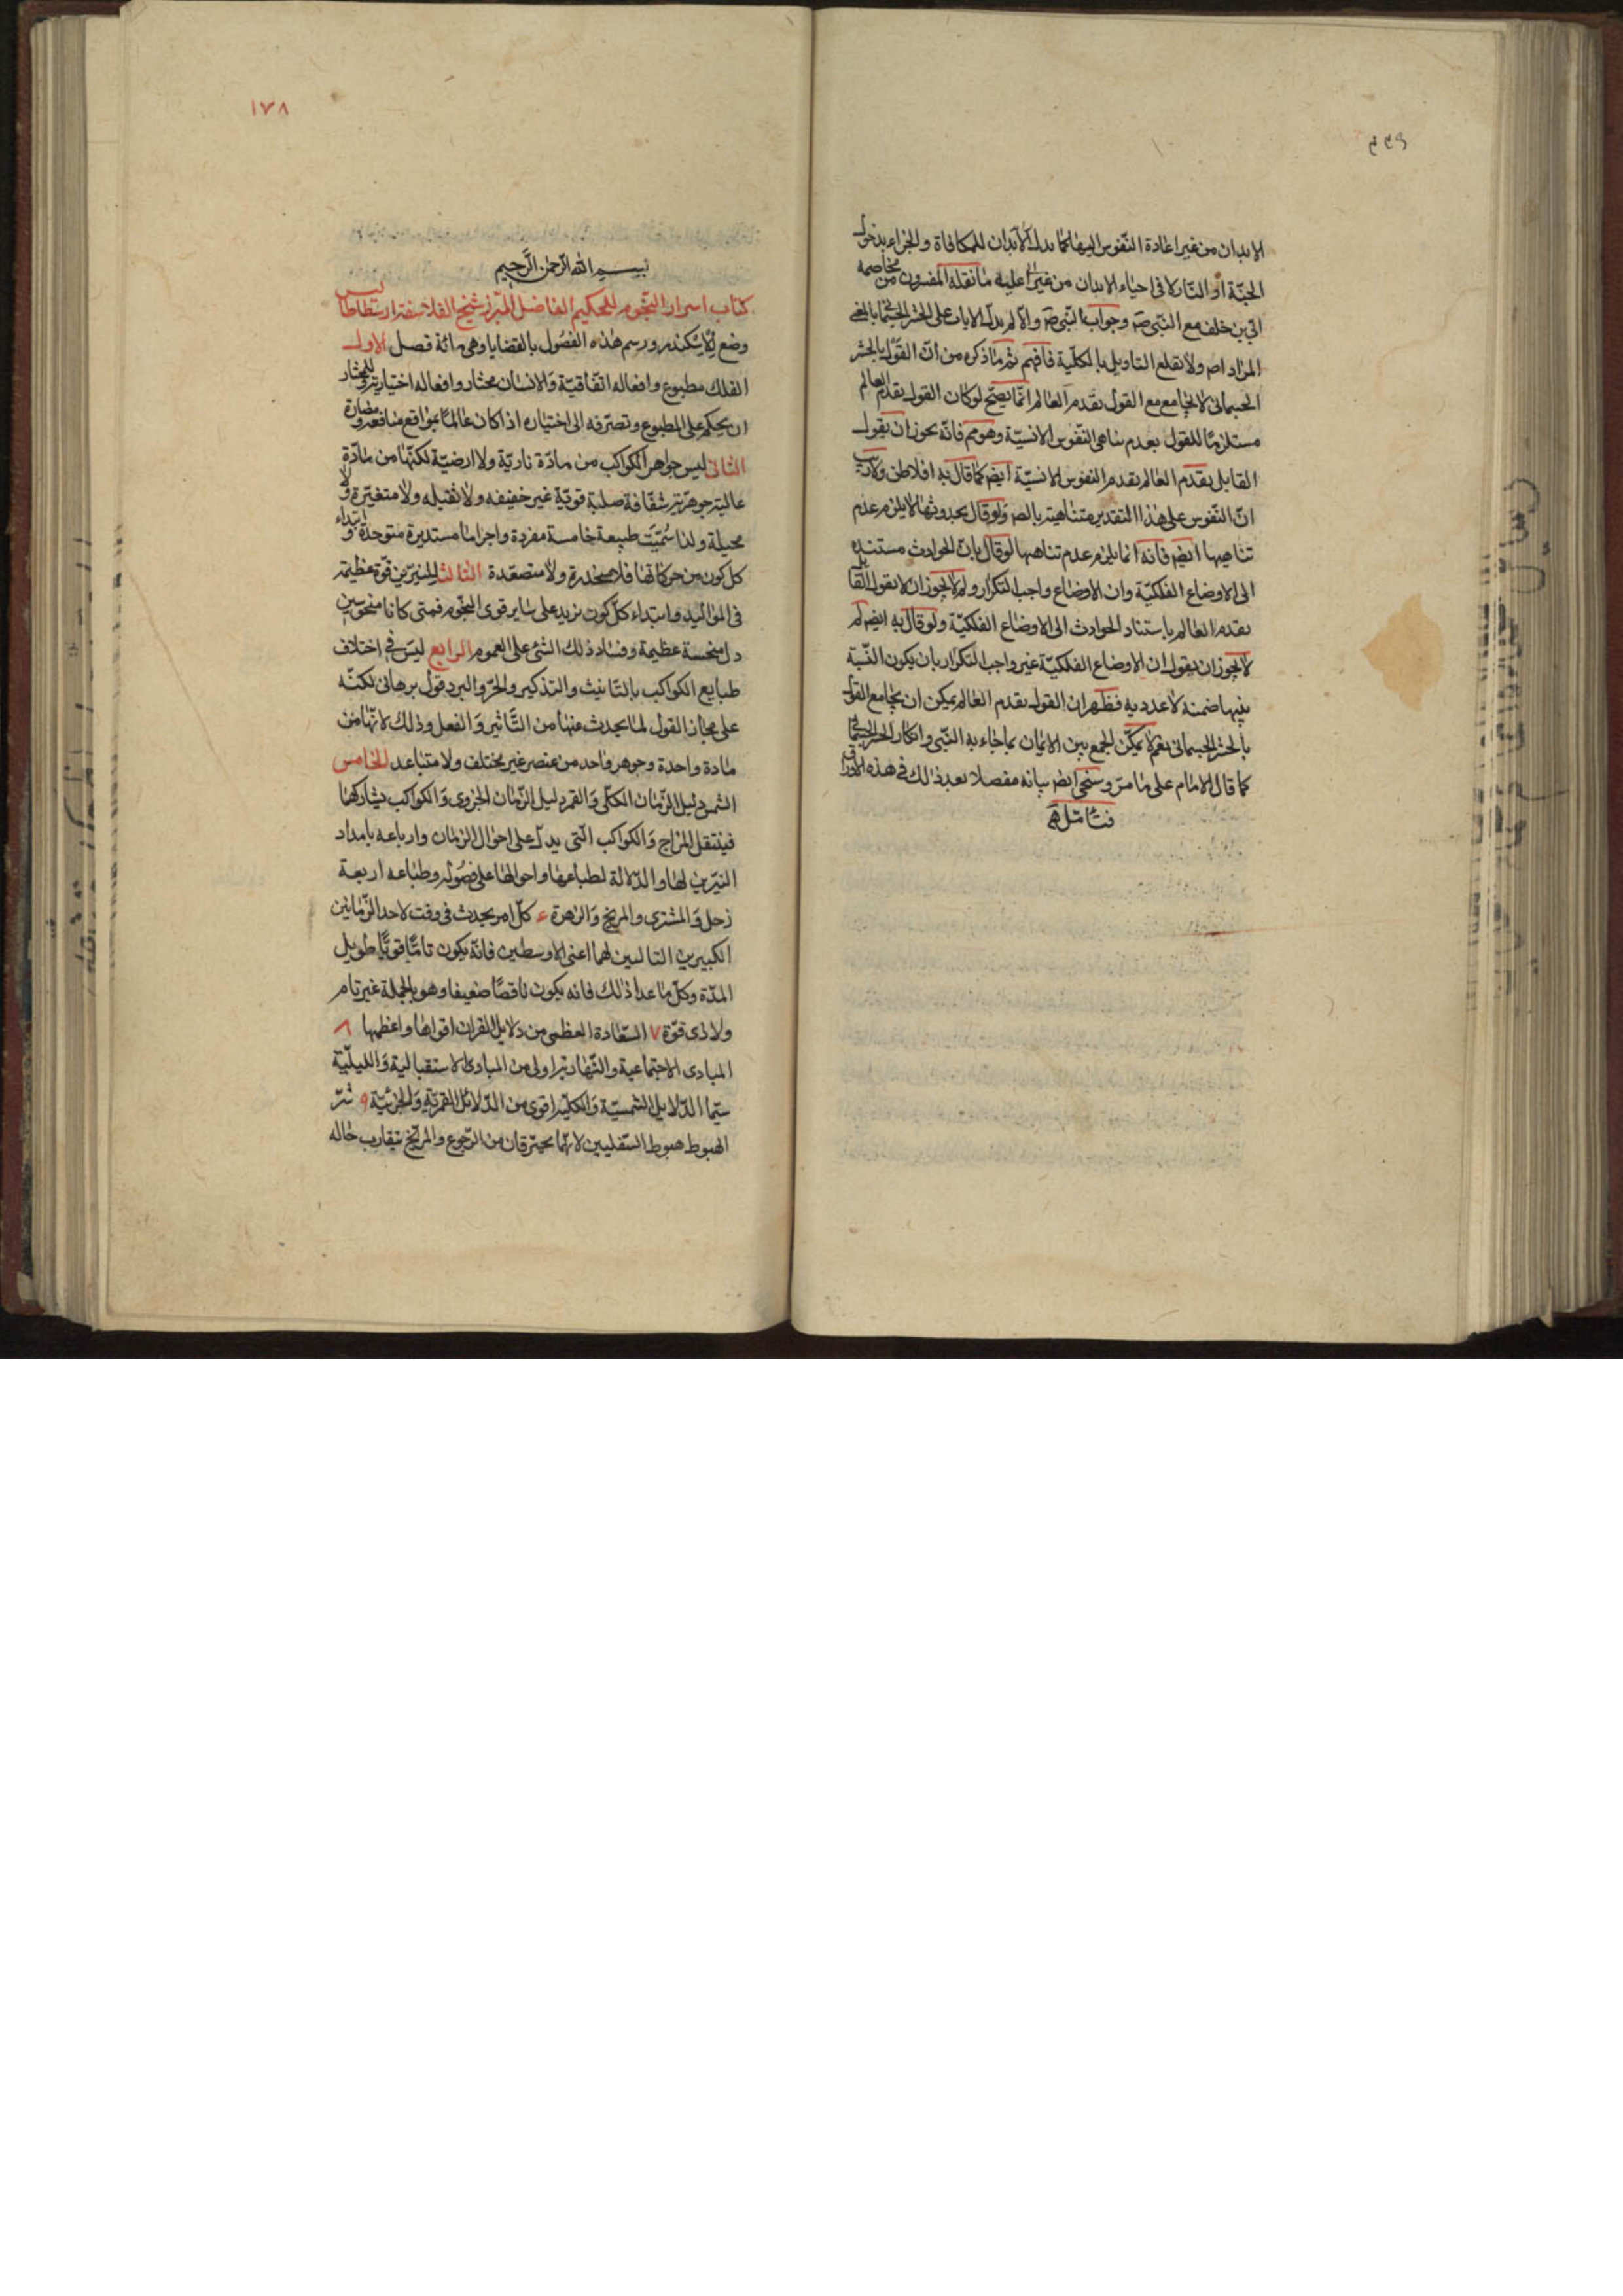 ٤٤٩
الابدان من غير اعادة النفوس اليها كما بدل الابدان للمكافاة والجزاء بدخول
الجنة او النار لا فى احياء الابدان من غير عليه ما نقله المفسرون من مخاصمة
ابى بن خلف مع النبى ص وجواب النبى ص والا لم يدل الايات على الحشر الجسمانى
المراد اص ولا تقلع التاويل بالكلية فافهم ثم ما ذكره من ان القول بالحشر
الجسمانى لا يجامع مع القول بقدم العالم انما يصح لو كان القول بقدم العالم
مستلزما للقول بعدم تناهى النفوس الانسية وهو مم فانه يجوز ان يقول
القايل بقدم العالم بقدم النفوس الانسية ايضا كما قال به افلاطن ولا ريب
ان النفوس على هذا التقدير متناهية بالص ولو قال بحدوثها لا يلزم عدم
تناهيها ايض فانه انما يلزم عدم تناهيها لو قال بان الحوادث مستنده
الى الاوضاع الفلكية وان الاوضاع واجب التكرار ولم لا يجوز ان لا يقول القايل
بقدم العالم باستناد الحوادث الى الاوضاع الفلكية ولو قال به ايض لم
لا يجوز ان يقول ان الاوضاع الفلكية غير واجب التكرار بان يكون النسبة
بينها صمية لا عددية فظهر ان القول بقدم العالم يمكن ان يجامع القول
بالحشر الجسمانى نعم لا يمكن الجمع بين الايمان بما جاء به النبى وانكار الحشر الجسمانى
كما قال الامام على ما مر وسيجئ ايض بيانه مفصلا بعد ذلك فى هذه الاوراق
فتامل
١٧٨
بسم الله الرحمن الرحيم
كتاب اسرار النجوم للحكيم الفاضل المبرز شيخ الفلاسفة ارسطاطاليس
وضع لاسكندر ورسم هذه الفصول بالقضايا وهى مائة فصل الاول
الفلك مطبوع وافعاله اتفاقية والانسان مختار وافعاله اختيارية وللمختار
ان يحكم على المطبوع وتصرفه الى اختياره اذا كان عالما بمواقع منافعه ومضاره
الثانى ليس جواهر الكواكب من مادة نارية ولا ارضية لكنها من مادة
عالية جوهرية شفافة صلبة قوية غير خفيفه ولا ثقيله ولا متغيرة ولا
محيلة ولذا سميت طبيعة خامسة مفردة واجراما مستديرة متوحدة وابتداء
كل كون من حركاتها فلا منحدرة ولا متصعدة الثالث للنيرين قوة عظيمة
فى المواليد وابتداء كل كون تزيد على ساير قوى النجوم فمتى كانا منحوسين
دل منحسة عظيمة وفساد ذلك الشئ على العموم الرابع ليس فى اختلاف
طبايع الكواكب بالتانيث والتذكير والحر والبرد قول برهانى لكنه
على مجاز القول لما يحدث عنها من التاثير والفعل وذلك لانها من
مادة واحدة وجوهر واحد من عنصر غير مختلف ولا متباعد الخامس
الشمس دليل الزمان الكلى والقمر دليل الزمان الجزوى والكواكب يشاركهما
فينتقل المزاج والكواكب التى يدل على احوال الزمان وارباعه بامداد
النيرين لها والدلالة لطباعها واحوالها على فصوله وطباعه اربعة
زحل والمشترى والمريخ والزهرة ع كل امر يحدث فى وقت لاحد الزمانين
الكبيرين التاليين لهما اعنى الاوسطين فانه يكون تاما قويا طويل
المدة وكل ما عدا ذلك فانه يكون ناقصا ضعيفا وهو بالجملة غير تام
ولا ذى قوة ٧ السعادة العظمى من دلايل القران اقواها واعظمها ٨
المبادى الاجتماعية والنهارية اولى من المبادى الاستقبالية والليلية
سيما الدلايل الشمسية والكلية اقوى من الدلائل القمرية والجزئية ٩ شر
الهبوط هبوط السفليين لانهما يحترقان من الرجوع والمريخ يتقارب حاله